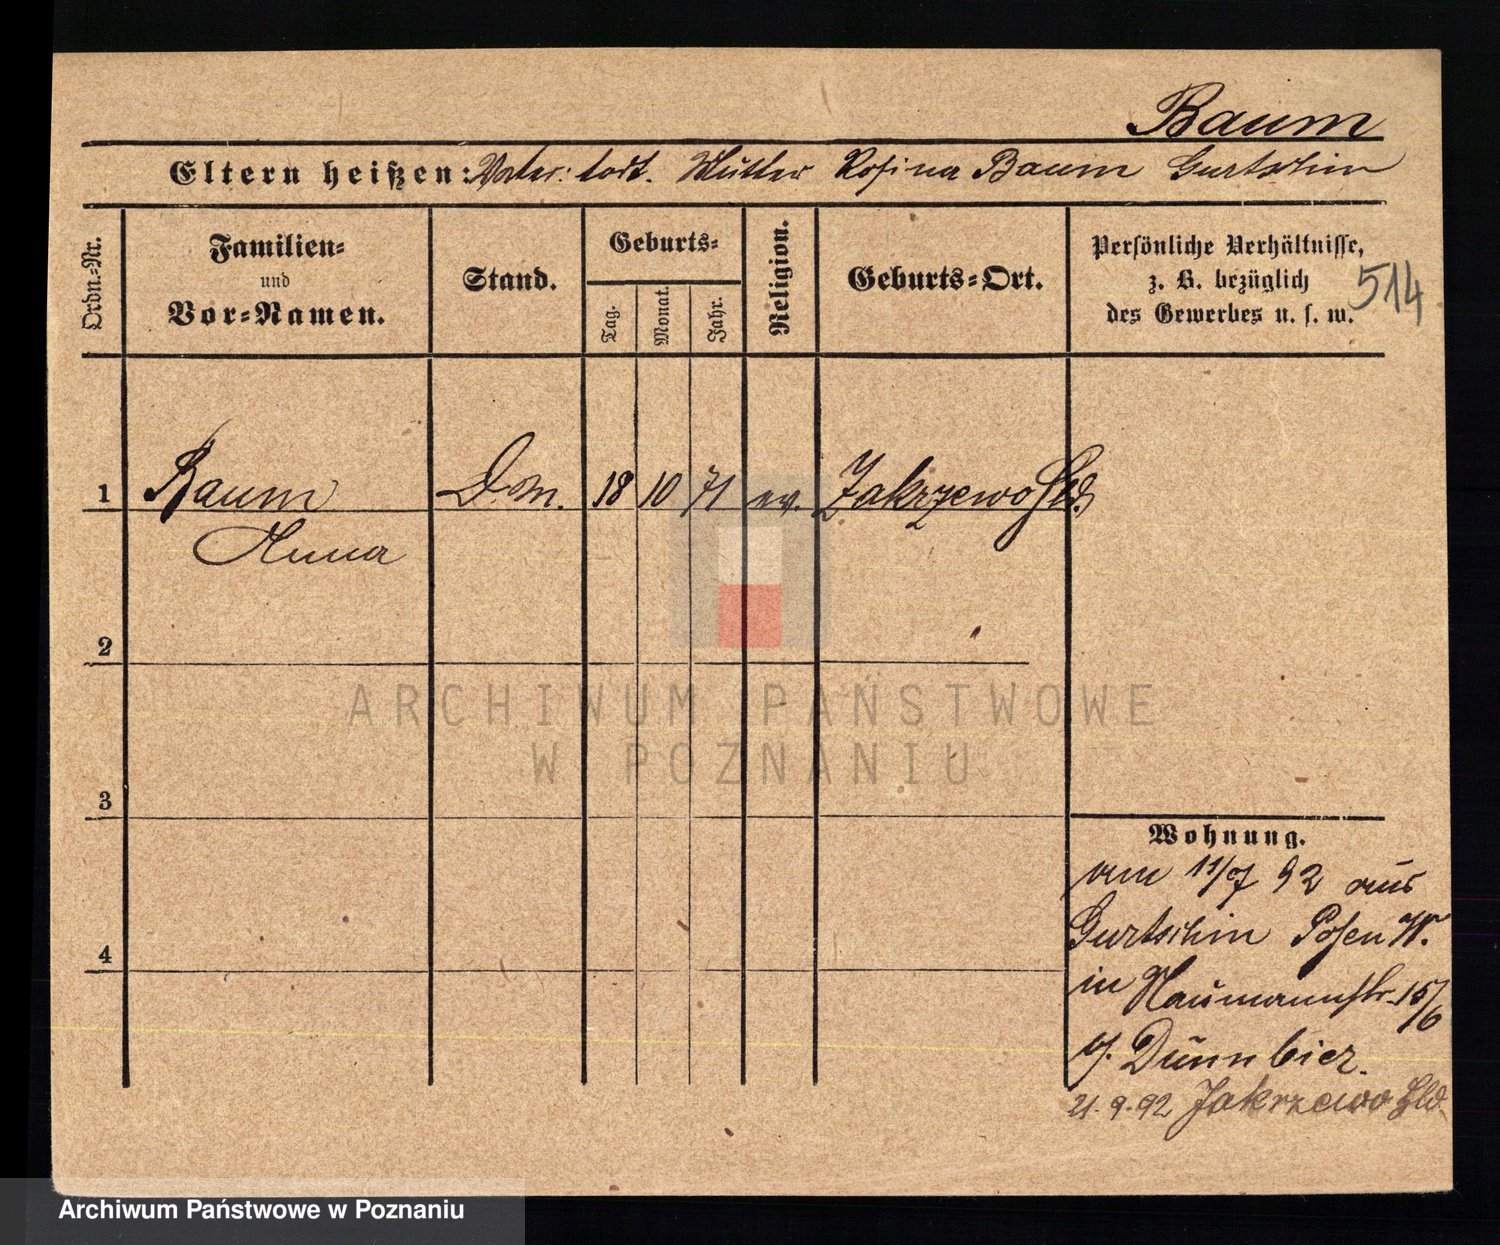 Baum
Eltern heißen: Vater: todt. Mutter Rosina Baum Gurtschin
Ordn.-Nr.
Familien-
und
Vor-Namen.
Stand.
Geburts-
Tag.
Monat.
Jahr.
Religion.
Geburts-Ort.
Persönliche Verhältnisse,
z. B. bezüglich
des Gewerbes u. s. w.
514
1 Baum D.M. 18 10 71 ev. Zakrzewo Hld.
Anna
2
3
4
Wohnung.
am 11/7 92 aus
Gurtschin Posen W.
in Naumannstr. 15/6
b. Dünnbier.
21.9.92 Zakrzewo Hld
ARCHIWUM PAŃSTWOWE
W POZNANIU
Archiwum Państwowe w Poznaniu